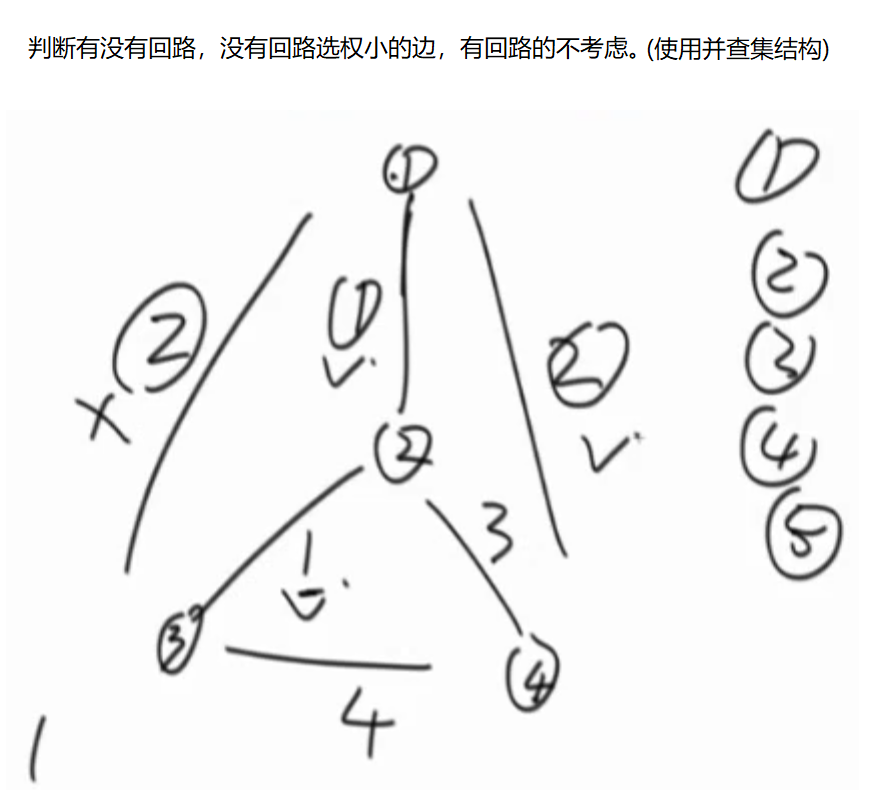 判断有没有回路，没有回路选权小的边，有回路的不考虑。(使用并查集结构)
①
①
②
②
①
③
②
②
④
3
⑤
1
③
④
4
1